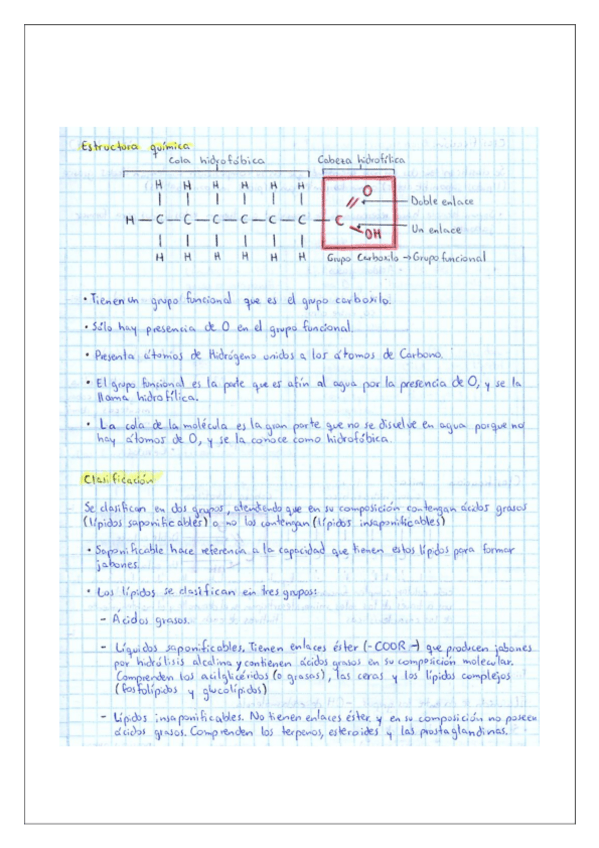 Estructura química
Cola hidrofóbica
Cabeza hidrofílica
H H H H H H
O
Doble enlace
H - C - C - C - C - C - C - C
Un enlace
OH
H H H H H H
Grupo Carboxilo → Grupo funcional
• Tienen un grupo funcional que es el grupo carboxilo.
• Sólo hay presencia de O en el grupo funcional.
• Presenta átomos de Hidrógeno unidos a los átomos de Carbono.
• El grupo funcional es la parte que es afín al agua por la presencia de O, y se la
llama hidrofílica.
• La cola de la molécula es la gran parte que no se disuelve en agua porque no
hay átomos de O, y se la conoce como hidrofóbica.
Clasificación
Se clasifican en dos grupos, atendendo que en su composición contengan ácidos grasos
(lípidos saponificables) o no los contengan (lípidos insaponificables)
• Saponificable hace referencia a la capacidad que tienen estos lípidos para formar
jabones.
• Los lípidos se clasifican en tres grupos:
- Ácidos grasos.
- Líquidos saponificables. Tienen enlaces éster (-COOR-) que producen jabones
por hidrólisis alcalina y contienen ácidos grasos en su composición molecular.
Comprenden los acilglicéridos (o grasas), las ceras y los lípidos complejos
(fosfolípidos y glucolípidos)
- Lípidos insaponificables. No tienen enlaces éster y en su composición no poseen
ácidos grasos. Comprenden los terpenos, esteroides y las prostaglandinas.